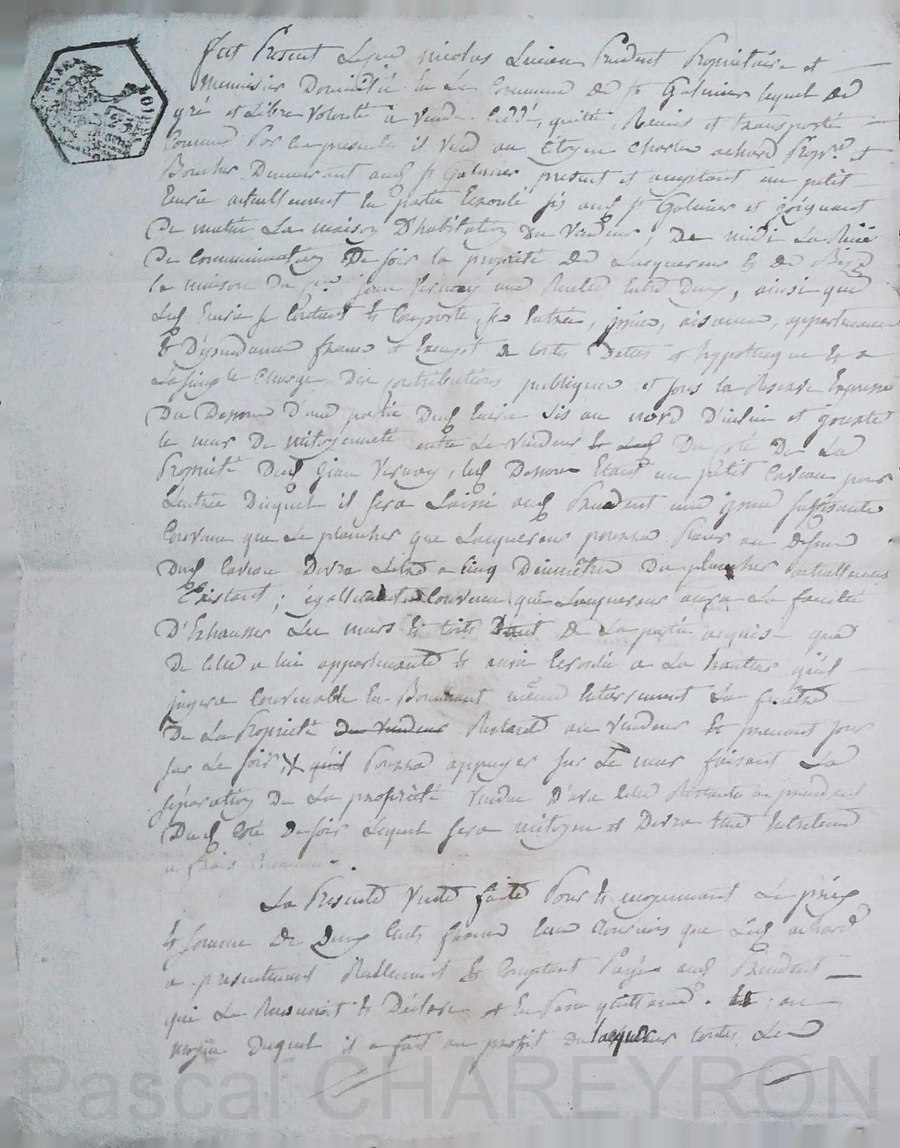 Fut Présent Le sieur nicolas Lucien Prudent Propriétaire et
Menuisier Domicilié En La Commune de St Galmier lequel de
gré et Libre Volonté a Vendu Cédé, quitté, Remis et transporté
Comme Par Ces présentes il Vend au Citoyen Charles achard Propre. et
Boucher Demeurant aud St Galmier présent et acceptant un petit
Ecurie actuellement En partie Ecroulé sis aud St Galmier et joignant
De matin La maison D'habitation du Vendeur, De midi La Ruë
De Communication De soir la propriété de Lacquereur & de Bize
la maison du sr. jean Vernay une Ruelle Entre Deux, ainsi que
Lad Ecurie se Contient & Comporte, ses Entrées, prise, aisance, appartenance
& Dépendance franc et Exempt de toutes Dettes et hypotheque & a
La simple Charge Des contributions publiques et sous la Reserve Expresse
Du Dessous D'une partie Dud Ecurie sis au nord D'icelui et
le mur De mitoyenneté entre Le Vendeur & Du coté De La
Propriété Dud jean Vernay, led Dessous Etant un petit Caveau pour
L'entrée Duquel il sera Laissé aud Prudent une suffisante
Convenu que Le plancher que Lacquereur pourra Placer au Dessus
Dud Caveau Devra Etre a Cinq Décimètres Du plancher actuellement
Existant; également Convenu que Lacquereur aura La faculté
D'Exhausser Les murs & toits tant de La partie acquise que
De Celle a lui appartenante & aussi Ecroulée a La hauteur qu'il
jugera Convenable En Bouchant même Entièrement La fenêtre
De La Propriété du Vendeur Restant au Vendeur & prenant jour
sur Le soir, qu'il Pourra appuyer sur Le mur faisant La
séparation De La propriété Vendue D'avec Celle Restante au prudent
Dud Coté De soir Lequel sera mitoyen et Devra Etre Entretenu
a frais Communs.
La Présente Vente faite Pour & moyennant Le prix
& somme De Deux Cents francs que Led achard
a présentement Réellement & Comptant Payés aud Prudent
qui Le Reconnoit & Déclare et En Passe quittance. Et au
moyen Duquel il a fait au profit De lacquereur toutes Les
Pascal CHAREYRON